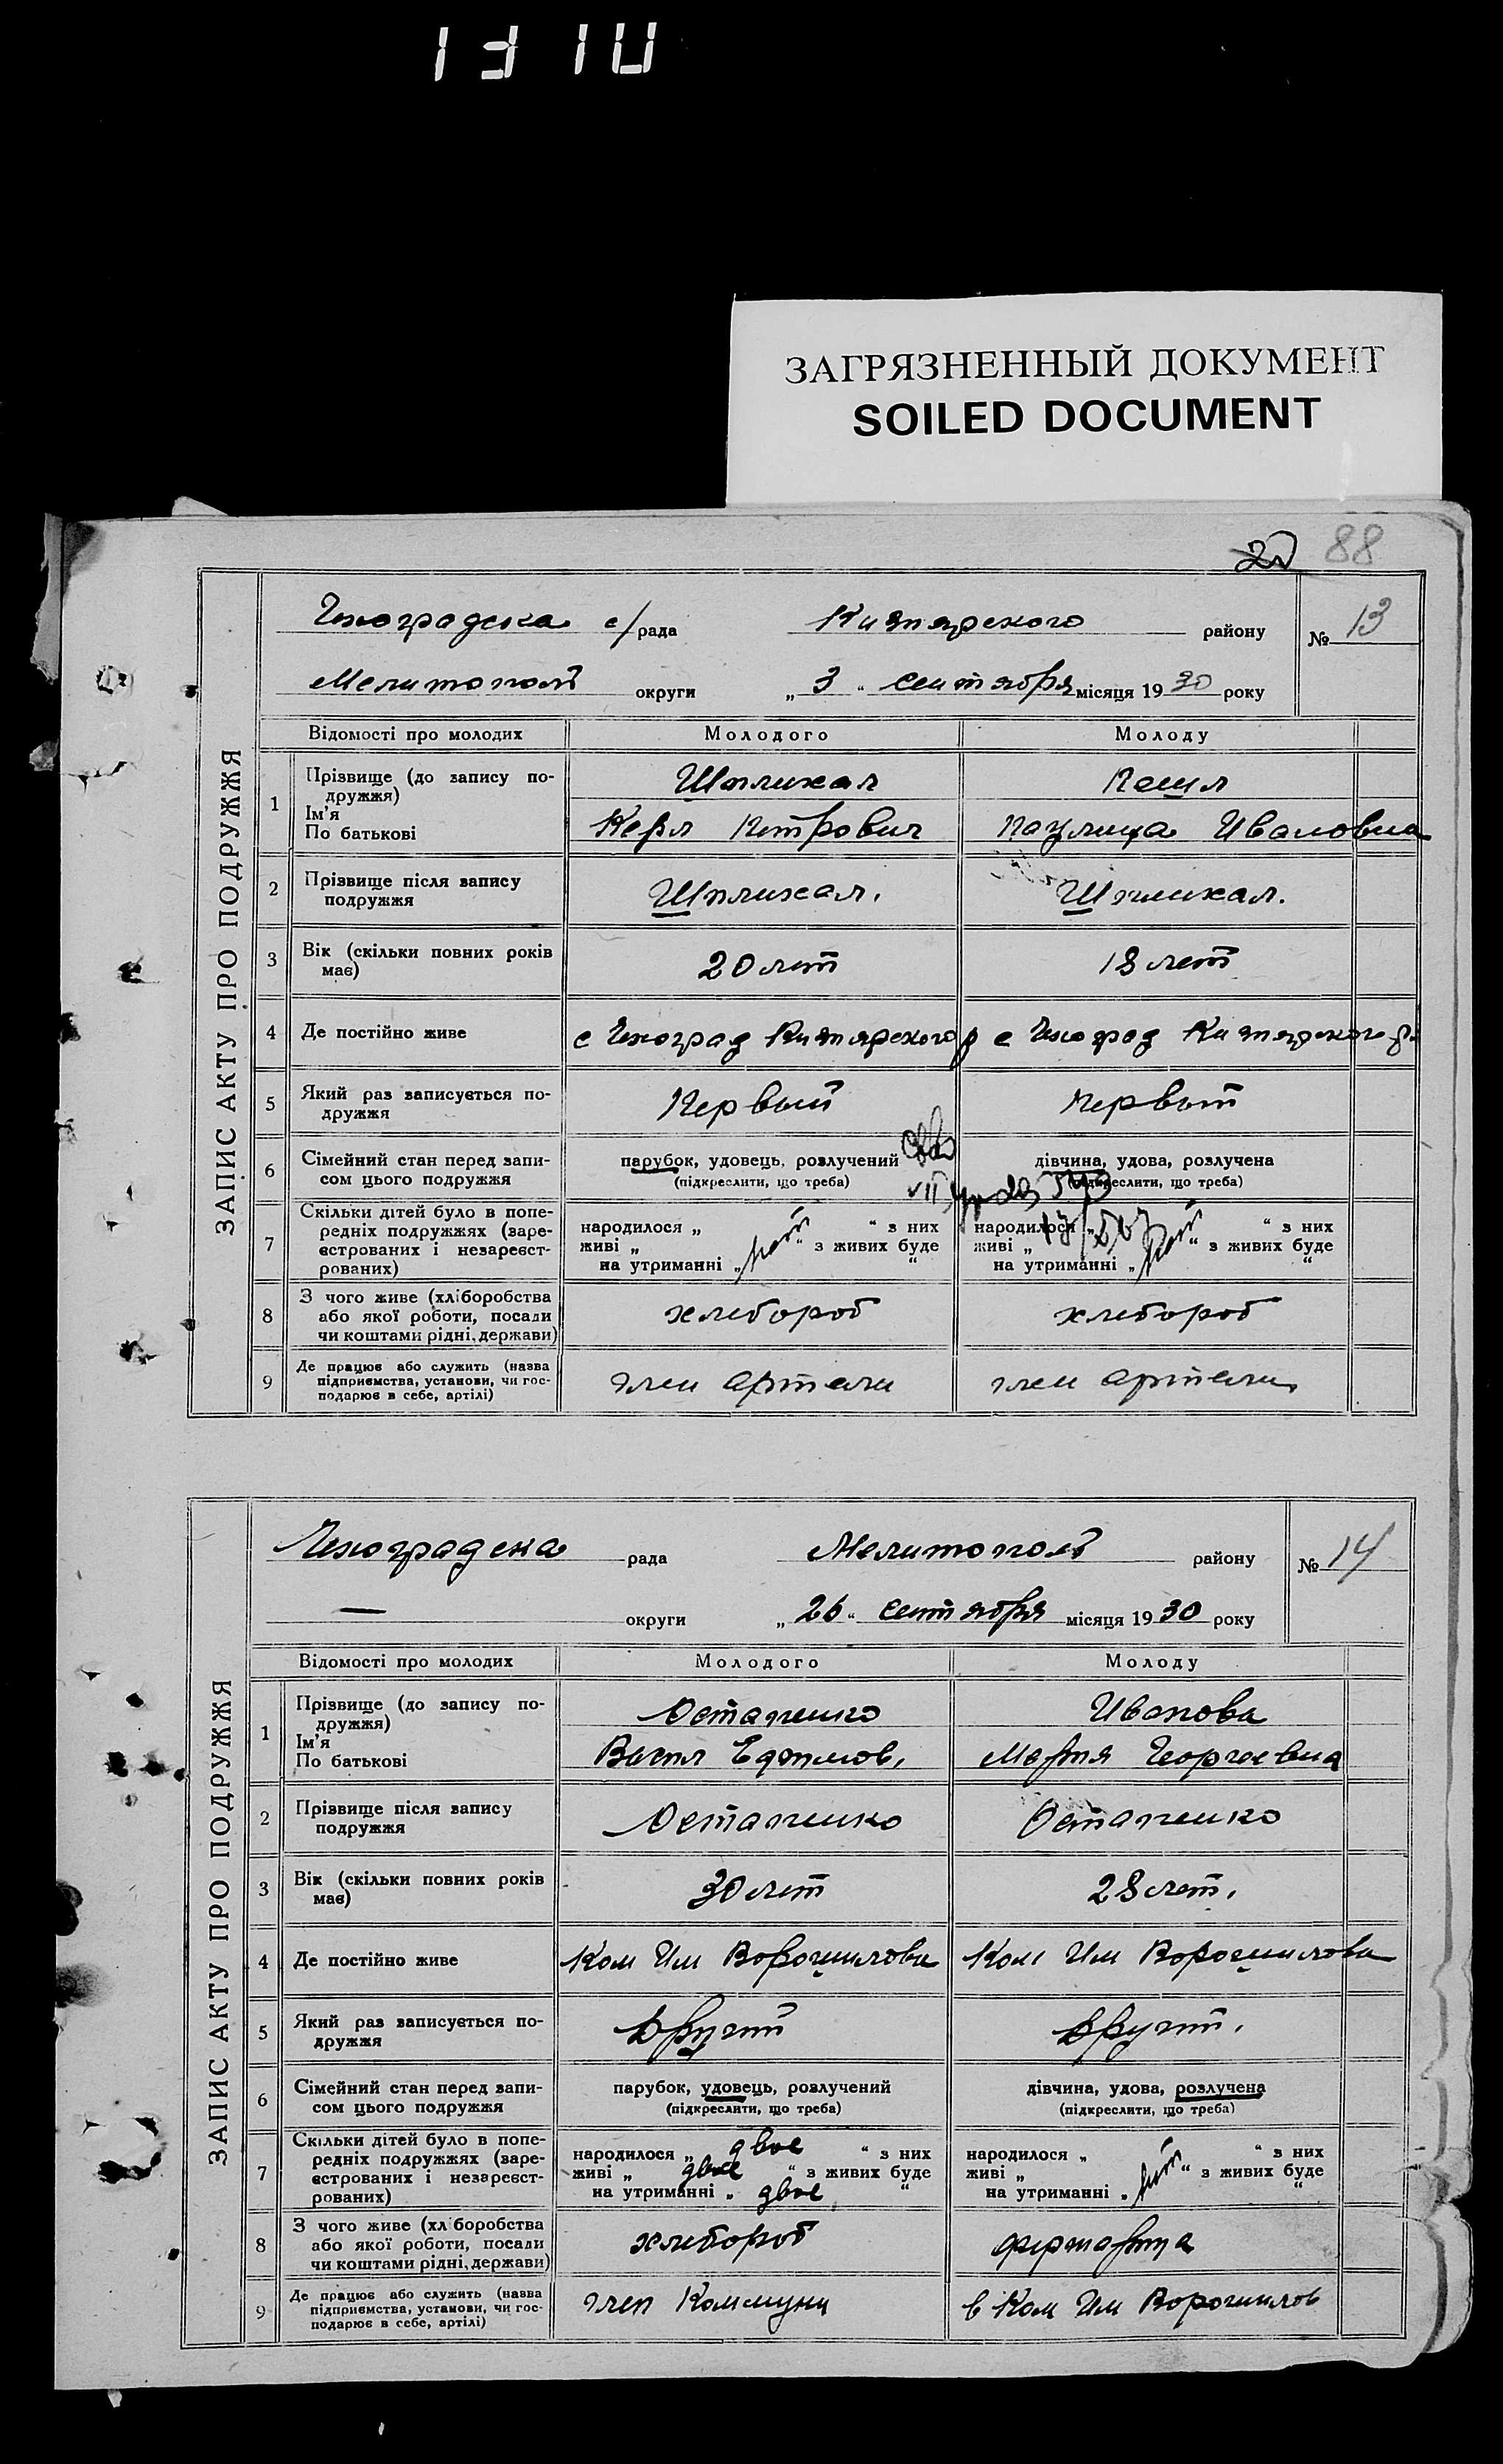 1310
ЗАГРЯЗНЕННЫЙ ДОКУМЕНТ
SOILED DOCUMENT
20 88
ЗАПИС АКТУ ПРО ПОДРУЖЖЯ
Чехоградска с/рада Кизиярского району № 13
Мелитополь округи „3“ сентября місяця 1930 року
Відомості про молодих Молодого Молоду
1 Прізвище (до запису по-
дружжя) Шпликал
Ім'я
По батькові Петрович Ивановна
2 Прізвище після запису
подружжя Шпликал. Шпликал.
3 Вік (скільки повних років
має) 20 лет 18 лет
4 Де постійно живе с Чехоград Кизиярского р с Чехоград Кизиярского р.
5 Який раз записується по-
дружжя Первый первый
6 Сімейний стан перед запи-
сом цього подружжя парубок, удовець, розлучений дівчина, удова, розлучена
(підкреслити, що треба) (підкреслити, що треба)
7 Скільки дітей було в попе-
редніх подружжях (заре-
єстрованих і незареєст-
рованих) народилося „ “ з них народилося „ “ з них
живі „ нет “ з живих буде живі „ нет “ з живих буде
на утриманні „ “ на утриманні „ “
8 З чого живе (хліборобства
або якої роботи, посади
чи коштами рідні, держави) хлебороб хлебороб
9 Де працює або служить (назва
підприємства, установи, чи гос-
подарює в себе, артілі) член артели член артели
ЗАПИС АКТУ ПРО ПОДРУЖЖЯ
Чехоградска рада Мелитополь району № 14
— округи „26“ сентября місяця 1930 року
Відомості про молодих Молодого Молоду
1 Прізвище (до запису по-
дружжя) Остапенко Иванова
Ім'я
По батькові Васил Ефимов, Мария Георгиевна
2 Прізвище після запису
подружжя Остапенко Остапенко
3 Вік (скільки повних років
має) 30 лет 28 лет.
4 Де постійно живе Ком Им Ворошилова Ком Им Ворошилова
5 Який раз записується по-
дружжя другий другий.
6 Сімейний стан перед запи-
сом цього подружжя парубок, удовець, розлучений дівчина, удова, розлучена
(підкреслити, що треба) (підкреслити, що треба)
7 Скільки дітей було в попе-
редніх подружжях (заре-
єстрованих і незареєст-
рованих) народилося „ двое “ з них народилося „ “ з них
живі „ двое “ з живих буде живі „ нет “ з живих буде
на утриманні „ двое “ на утриманні „ “
8 З чого живе (хліборобства
або якої роботи, посади
чи коштами рідні, держави) хлебороб
9 Де працює або служить (назва
підприємства, установи, чи гос-
подарює в себе, артілі) член Коммуны в Ком Им Ворошилов